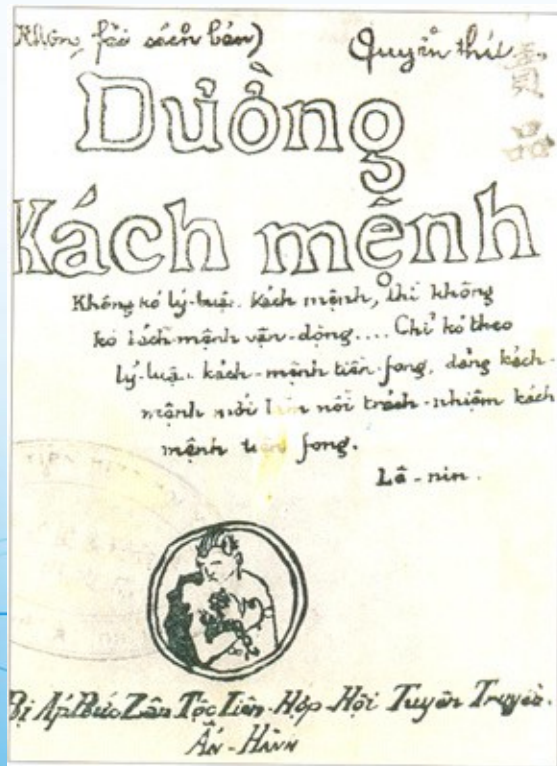 (Không fải sách bán) Quyển thứ
貴品
Đường
Kách mệnh
Không kó lý-luận kách mệnh, thì không
kó kách-mệnh vận-động.... Chỉ kó theo
lý-luận kách-mệnh tiền-fong, đảng kách-
mệnh mới làm nổi trách-nhiệm kách
mệnh tiền fong.
Lê-nin.
Bị Áp Bức Zân Tộc Liên-Hợp-Hội Tuyên Truyền.
Ấn-Hành